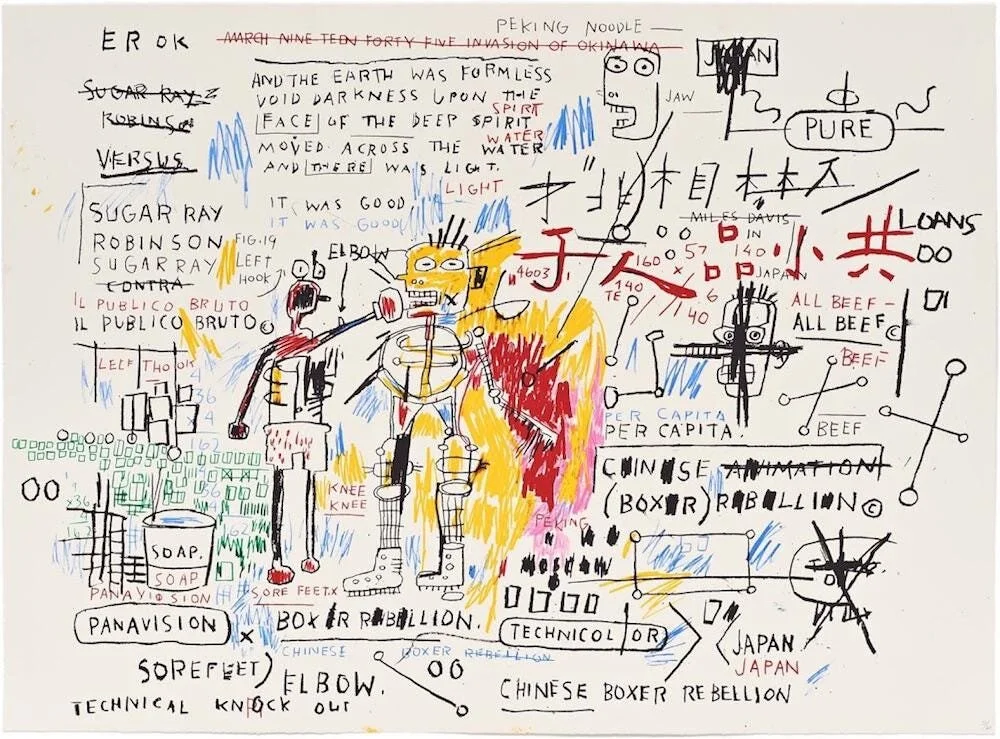 PEKING NOODLE
ER OK
MARCH NINE TEEN FORTY FIVE INVASION OF OKINAWA
JAPAN
SUGAR RAY
ROBINSO
VERSUS
AND THE EARTH WAS FORMLESS
VOID DARKNESS UPON THE
SPIRIT
FACE OF THE DEEP SPIRIT
WATER
MOVED ACROSS THE WATER
AND THERE WAS LIGHT.
LIGHT
JAW
PURE
IT WAS GOOD
IT WAS GOOD
SUGAR RAY
ROBINSON
SUGAR RAY
CONTRA
FIG.19
LEFT
HOOK
ELBOW
IL PUBLICO BRUTO
IL PUBLICO BRUTO©
MILES DAVIS
IN
JAPAN
LOANS
于人品小共
4603
140
TE
160 × 57
140
6
40
ALL BEEF
ALL BEEF
BEEF
BEEF
LELF THOOK
4
36
4
162
PER CAPITA
PER CAPITA.
CHINESE ANIMATION
(BOXER) REBELLION©
KNEE
KNEE
x36
SOAP.
SOAP
PEKING
MOSCOW
PANAVISION
SORE FEET.X
PANAVISION
X
BOXER REBELLION.
TECHNICOLOR
CHINESE BOXER REBELLION
JAPAN
JAPAN
SOREFEET)
ELBOW.
CHINESE BOXER REBELLION
TECHNICAL KNOCK OUT